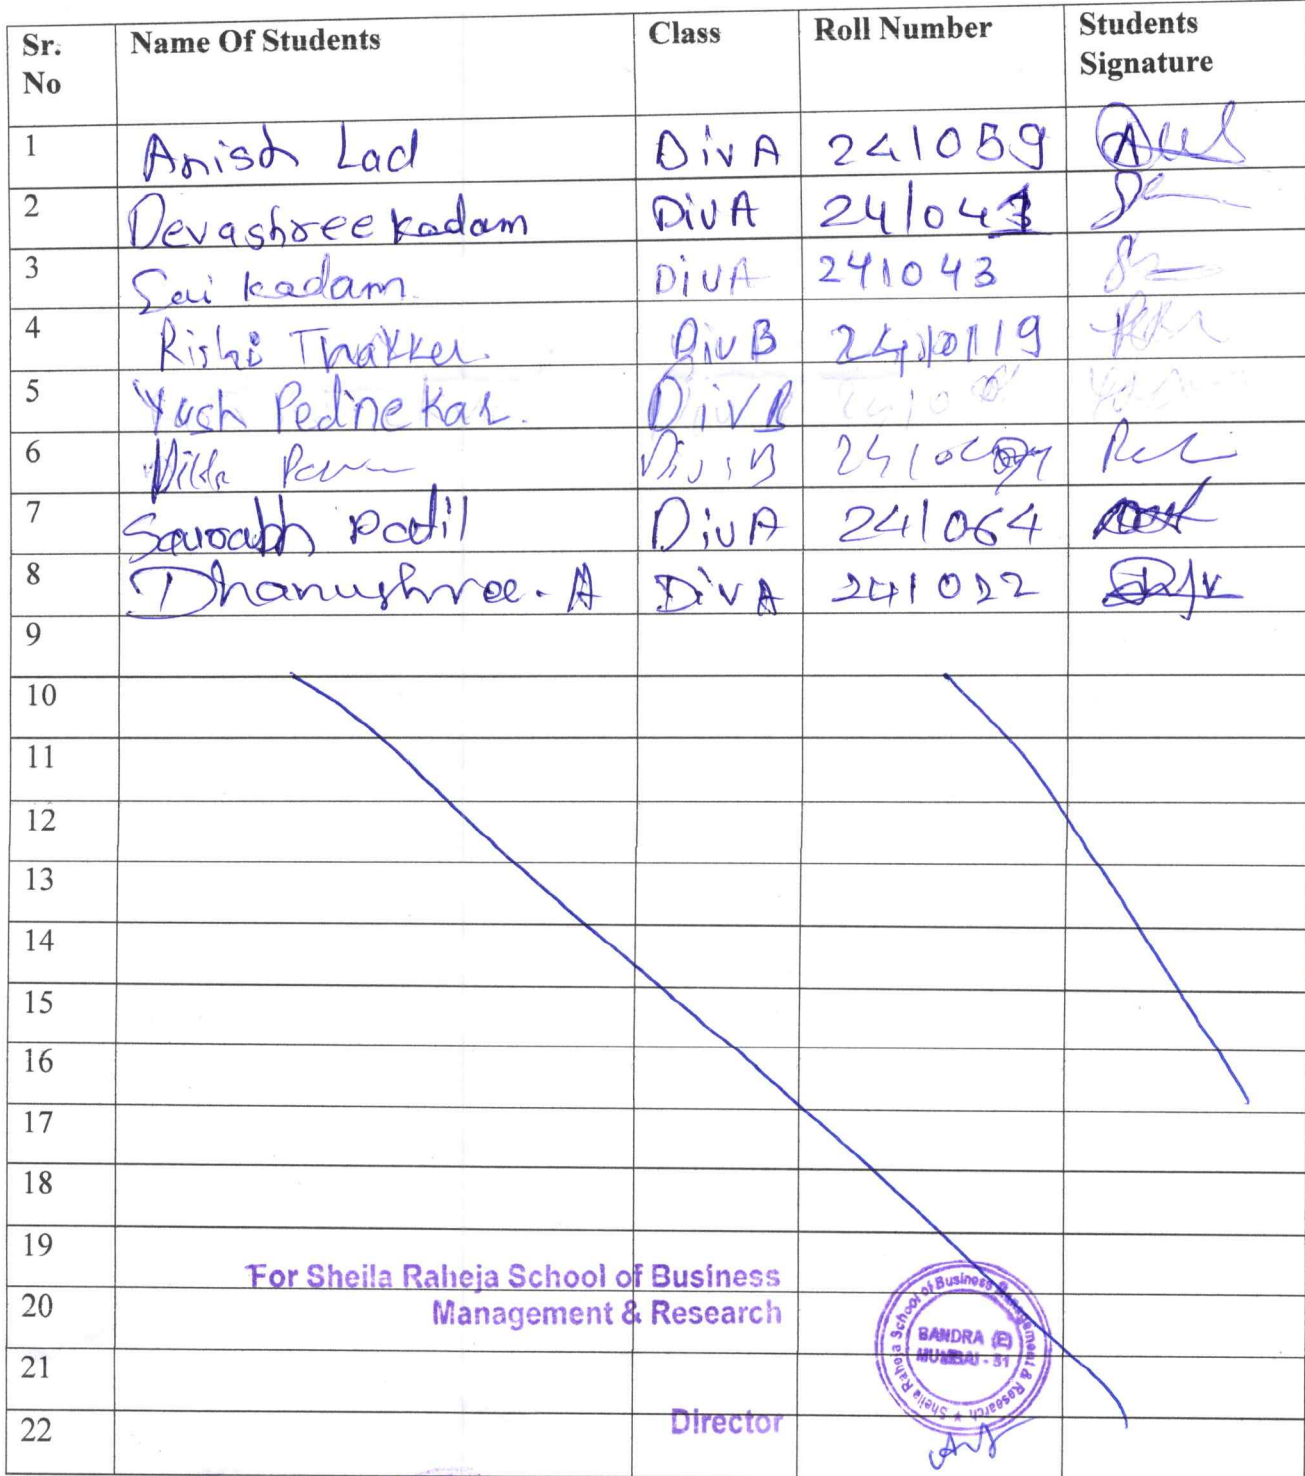 Sr. No Name Of Students Class Roll Number Students Signature
1 Anish Lad Div A 241059
2 Devashree Kadam Div A
3 Sai Kadam Div A 241043
4 Rishi Thakker. Div B
5 Yash Pednekar. Div B
6 Div B
7 Saurabh Patil Div A 241064
8 Dhanushree. A Div A 241022
9
10
11
12
13
14
15
16
17
18
19
For Sheila Raheja School of Business
20 Management & Research
Sheila Raheja School of Business Management & Research ★
BANDRA (E)
MUMBAI - 51
21
22 Director